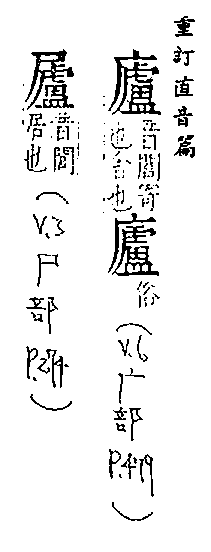 重訂直音篇
廬音閭寄也舍也廬俗(V.6广部P.479)
音閭居也(V.3尸部P.274)